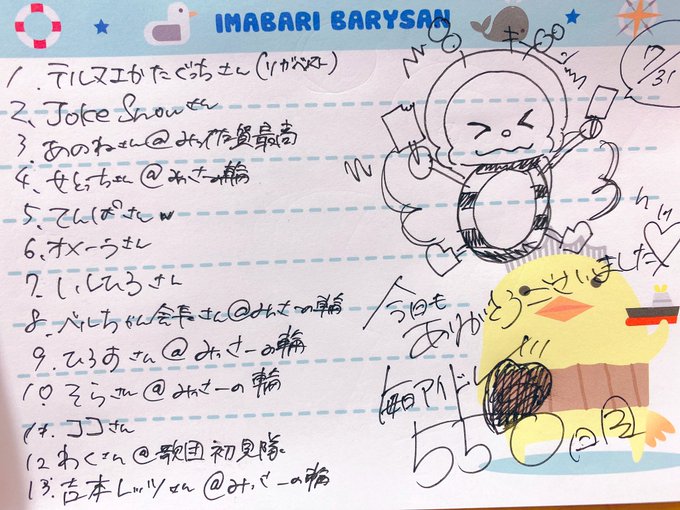 IMABARI BARYSAN
7/31
1. テルヌエかたぐっちさん(リガベスト)
2、Joke Snowさん
3、あのねさん@みっ佐賀最高
4、せとっちゃん@みっさーの輪
5、てんぱさんw
6、オメーうさん
7、いしひろさん
8、ベルちゃん会長さん@みっさーの輪
9、ひろあさん@みっさーの輪
10、そらさん@みっさーの輪
11、ココさん
12、わくさん@歌団初見隊
13、吉本レッツさん@みっさーの輪
キーン
今回も
ありがとうございました
毎日アイドル
550回